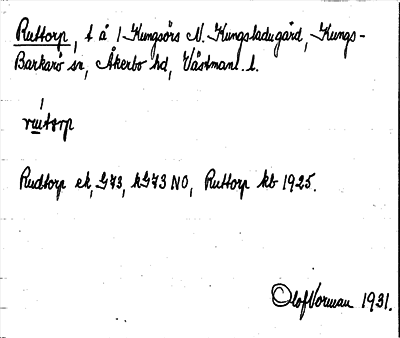 Ruttorp, t å 1 Kungsörs N. Kungsladugård, Kungs-
Barkarö sn, Åkerbo hd, Västmanl. l.
rutorp
Rudtorp ek, G73, kG73 NO, Ruttorp kb 1925.
Olof Vorman 1931.